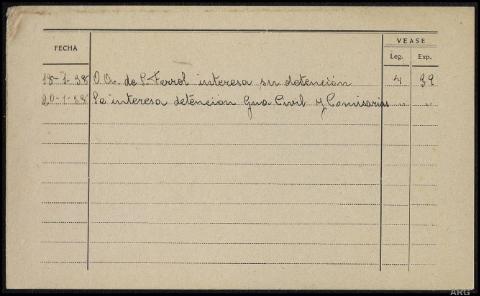 VEASE
FECHA Leg. Exp.
18-1-38 O.A. de P. Ferrol interesa su detención 4 39
20-1-38 Se interesa detencion Gua Civil y Comisarias " "
ARG